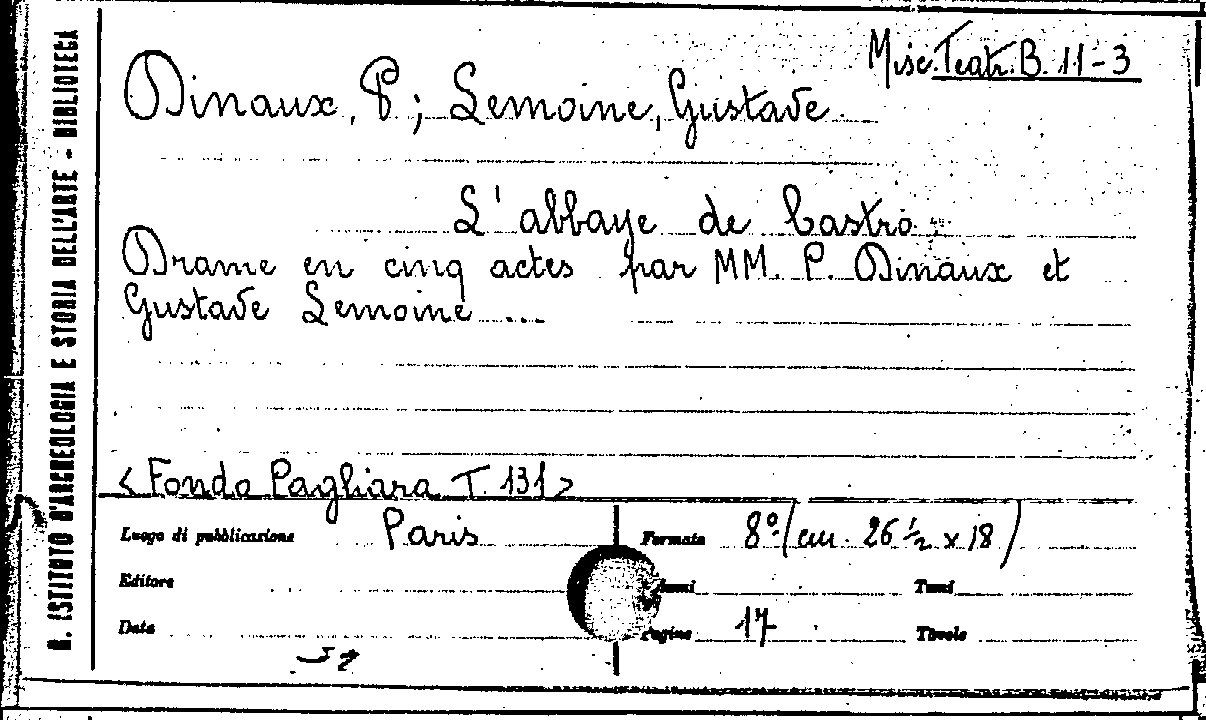 R. ISTITUTO D'ARCHEOLOGIA E STORIA DELL'ARTE - BIBLIOTECA
Misc. Teatr. B. 11-3
Dinaux, P; Lemoine, Gustave.
L'abbaye de Castro.
Drame en cinq actes par MM. P. Dinaux et
Gustave Lemoine ...
<Fondo Pagliara T. 131>
Luogo di pubblicazione Paris Formato 8º (cm. 26 ½ x 18)
Editore Volumi Tomi
Data Pagine 17 Tavole